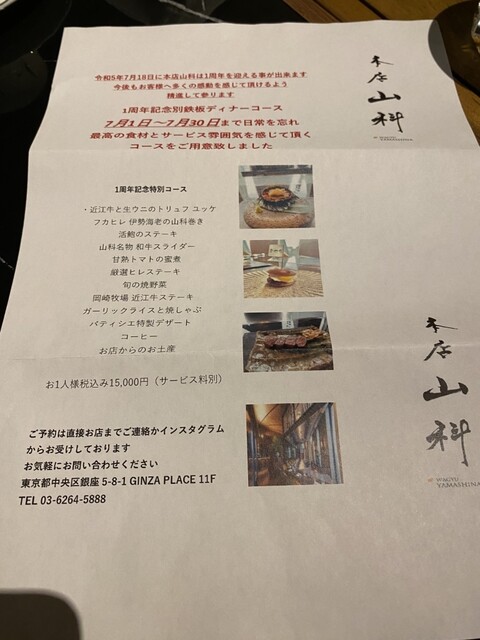 令和5年7月18日に本店山科は1周年を迎える事が出来ます
今後もお客様へ多くの感動を感じて頂けるよう
精進して参ります
1周年記念別鉄板ディナーコース
7月1日～7月30日まで日常を忘れ
最高の食材とサービス雰囲気を感じて頂く
コースをご用意致しました
本店 山科
WAGYU YAMASHINA
1周年記念特別コース
・近江牛と生ウニのトリュフ ユッケ
フカヒレ 伊勢海老の山科巻き
活鮑のステーキ
山科名物 和牛スライダー
甘熟トマトの蜜煮
厳選ヒレステーキ
旬の焼野菜
岡崎牧場 近江牛ステーキ
ガーリックライスと焼しゃぶ
パティシエ特製デザート
コーヒー
お店からのお土産
お1人様税込み15,000円（サービス料別）
本店 山科
WAGYU
YAMASHINA
ご予約は直接お店までご連絡かインスタグラム
からお受けしております
お気軽にお問い合わせください
東京都中央区銀座 5-8-1 GINZA PLACE 11F
TEL 03-6264-5888